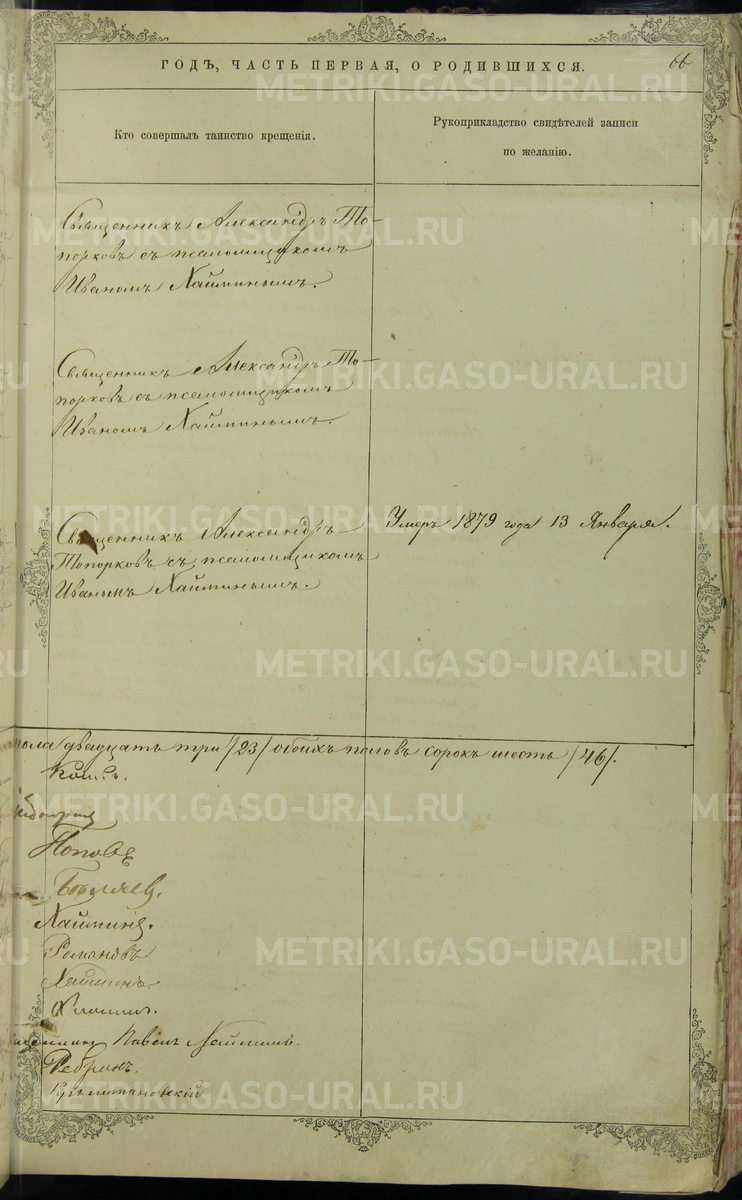 66
ГОДЪ, ЧАСТЬ ПЕРВАЯ, О РОДИВШИХСЯ.
Кто совершалъ таинство крещенія.
Рукоприкладство свидѣтелей записи
по желанію.
Священникъ Александръ То-
порковъ съ псаломщикомъ
Иваномъ Хайминымъ.
Священникъ Александръ То-
порковъ съ псаломщикомъ
Иваномъ Хайминымъ.
Священникъ Александръ
Топорковъ съ псаломщикомъ
Иваномъ Хайминымъ.
Умеръ 1879 года 13 Января.
пола двадцать три /23/ обоихъ половъ сорокъ шесть /46/.
Поповъ
Бѣляев.
Хайминъ.
Романовъ
Павелъ Хайминъ.
Ребринъ.
METRIKI.GASO-URAL.RU